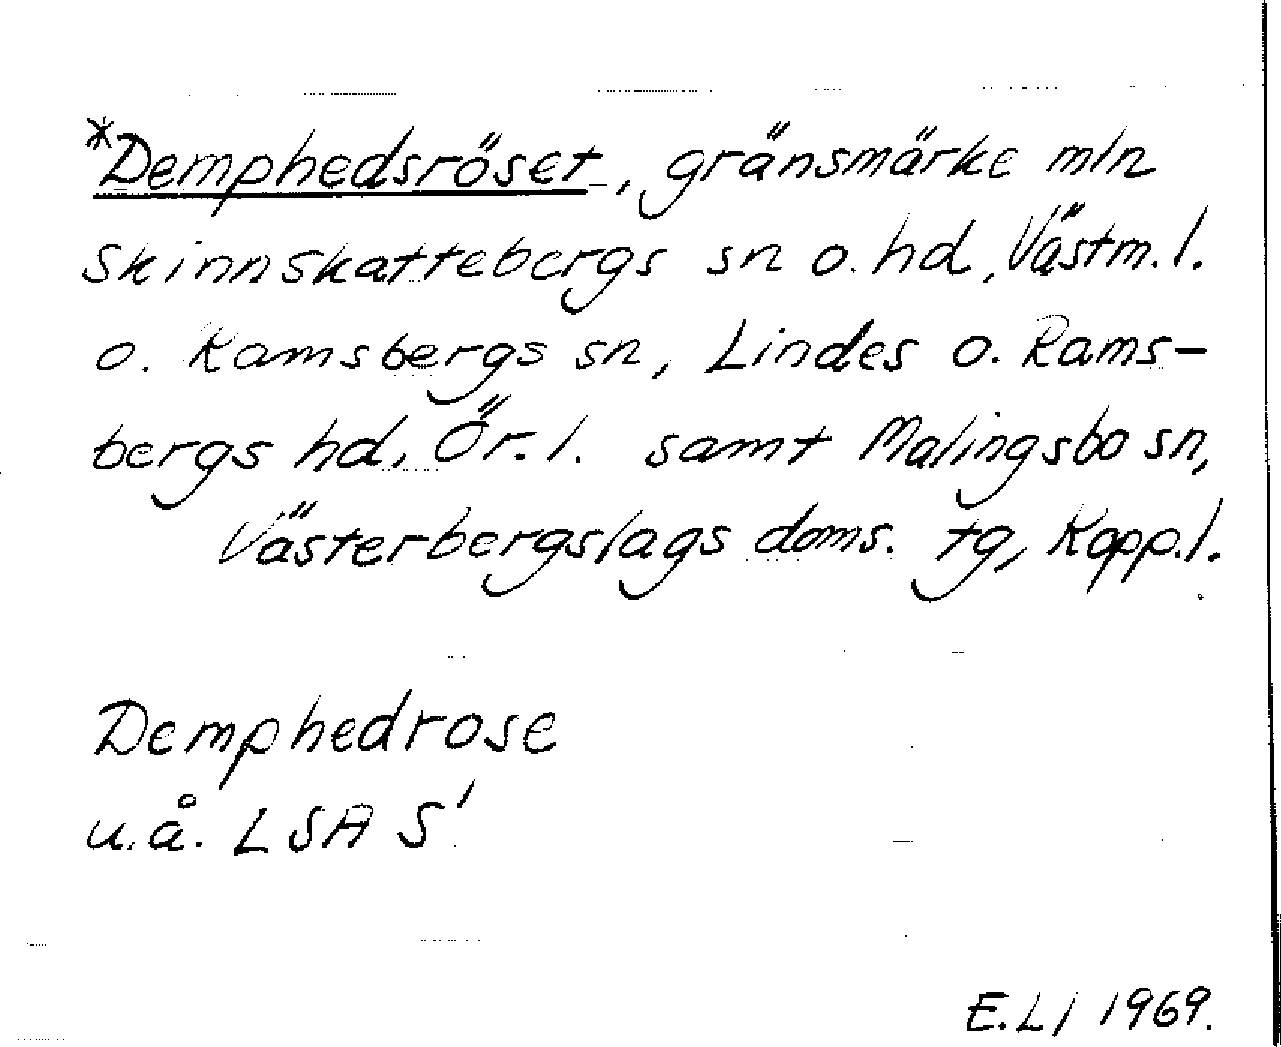 *Demphedsröset, gränsmärke mln
Skinnskattebergs sn o. hd, Västm. l.
o. Ramsbergs sn, Lindes o. Rams-
bergs hd, Ör. l. samt Malingsbo sn,
Västerbergslags doms. tg, Kopp. l.
Demphedrose
u.å. LSA S1
E.Li 1969.